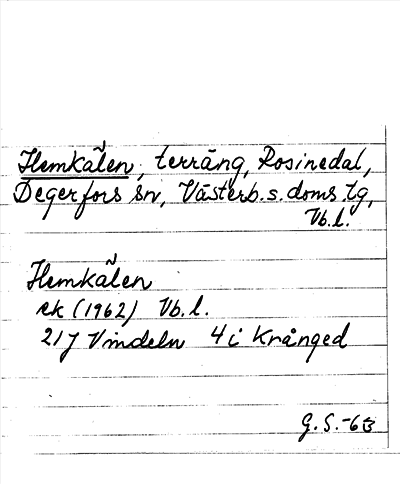 Hemkålen, terräng, Rosinedal,
Degerfors sn, Västerb. s. doms. tg,
Vb. l.
Hemkålen
ek (1962) Vb. l.
21J Vindeln 4i Krånged
G. S. -63